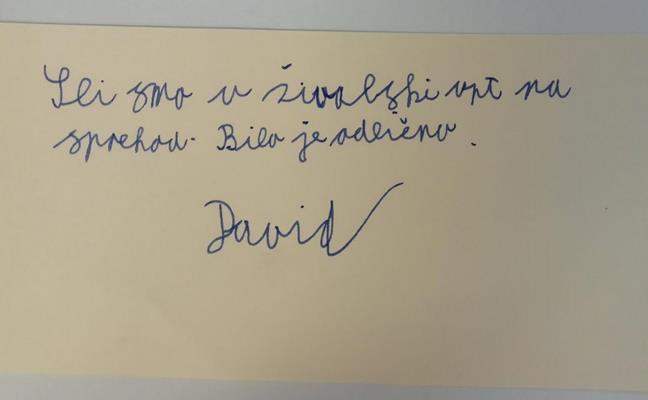 Šli smo v živalski vrt na
sprehod. Bilo je odlično.
David